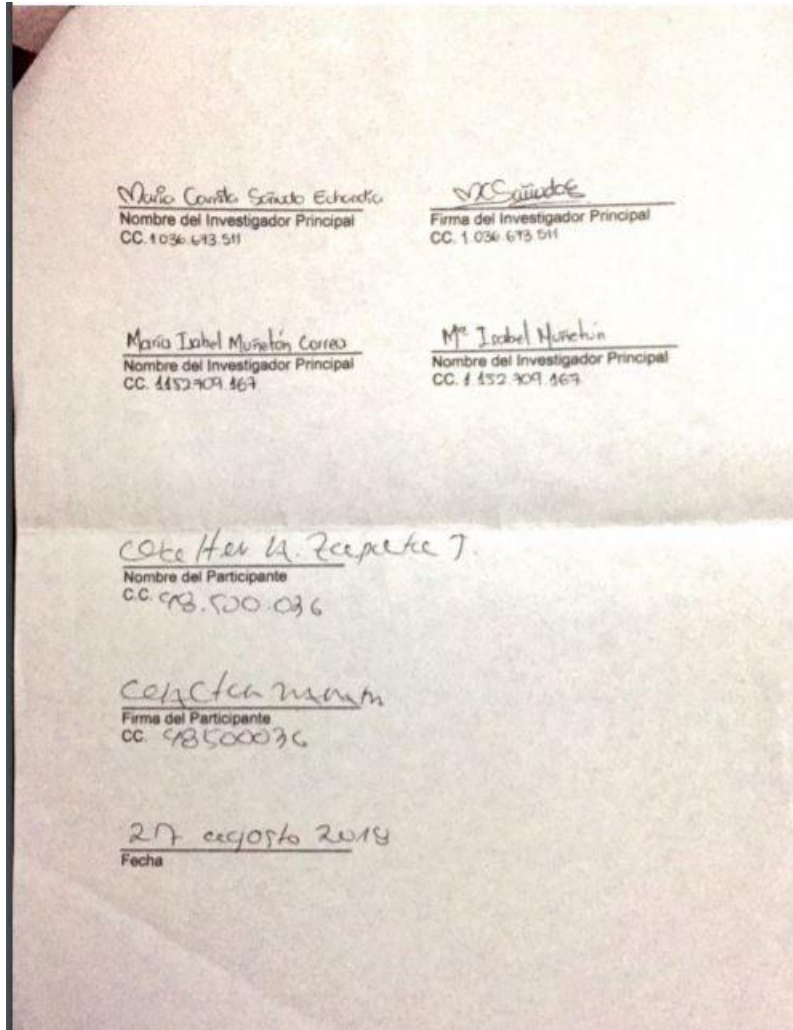 Maria Camila Sañudo Echandía
Nombre del Investigador Principal
CC. 1 036 673.511
MCSañudoE
Firma del Investigador Principal
CC. 1.036 673 511
María Isabel Muñetón Correa
Nombre del Investigador Principal
CC. 1152709.167
Mª Isabel Muñetón
Nombre del Investigador Principal
CC. 1 152 709.167
A. Zapata J.
Nombre del Participante
C.C. 98.500.036
Firma del Participante
CC. 98500036
27 agosto 2018
Fecha